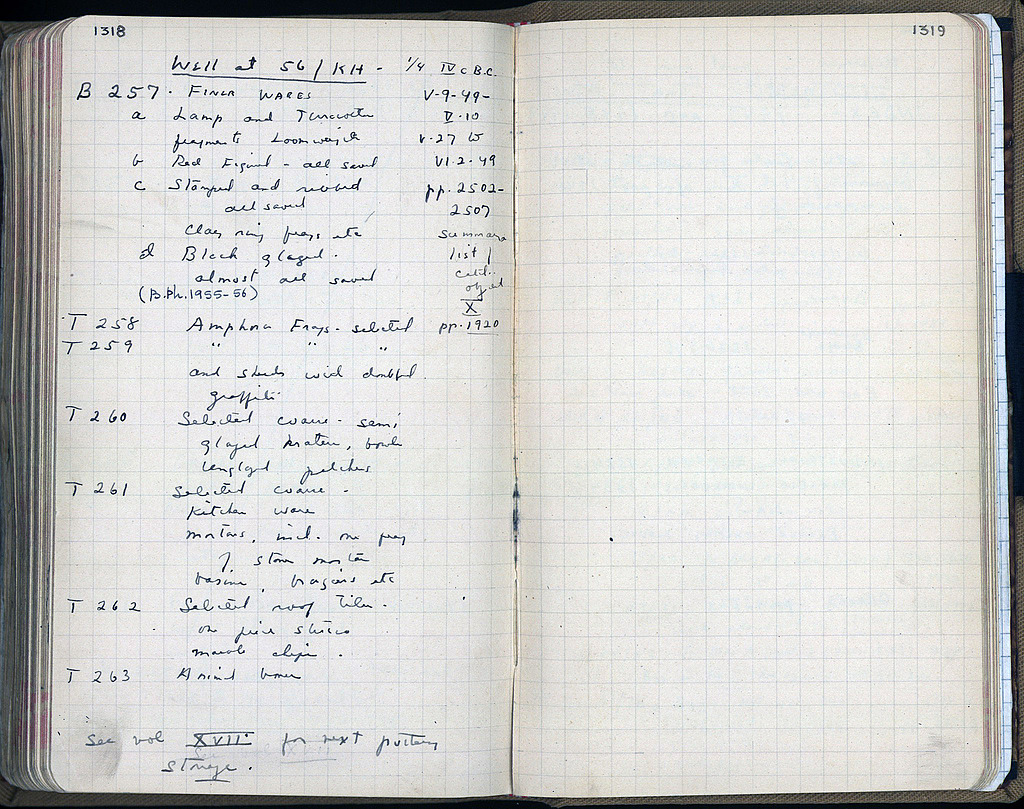 1318
Well at 56/KH - 1/4 IV c B.C.
B 257. FINER WARES V-9-49-
a Lamp and Terracotta V-10
fragments Loomweight V-27 W
b Red Figured - all saved VI-2-49
c Stamped and ribbed pp. 2502-
all saved 2507
clay ring frags etc summary
d Black glazed. list of
almost all saved catal. object
(B.Ph. 1955-56) X
T 258 Amphora Frags - selected pp. 1920
T 259 " " "
and sherds with doubtful
graffiti
T 260 Selected coarse - semi
glazed kraters, bowls
unglazed pitchers
T 261 Selected coarse -
kitchen ware
mortars, incl. one frag
of stone mortar
basins, braziers etc
T 262 Selected roof tiles -
one piece stucco
marble chips.
T 263 Animal bones
See vol XVII for next pottery
storage.
1319